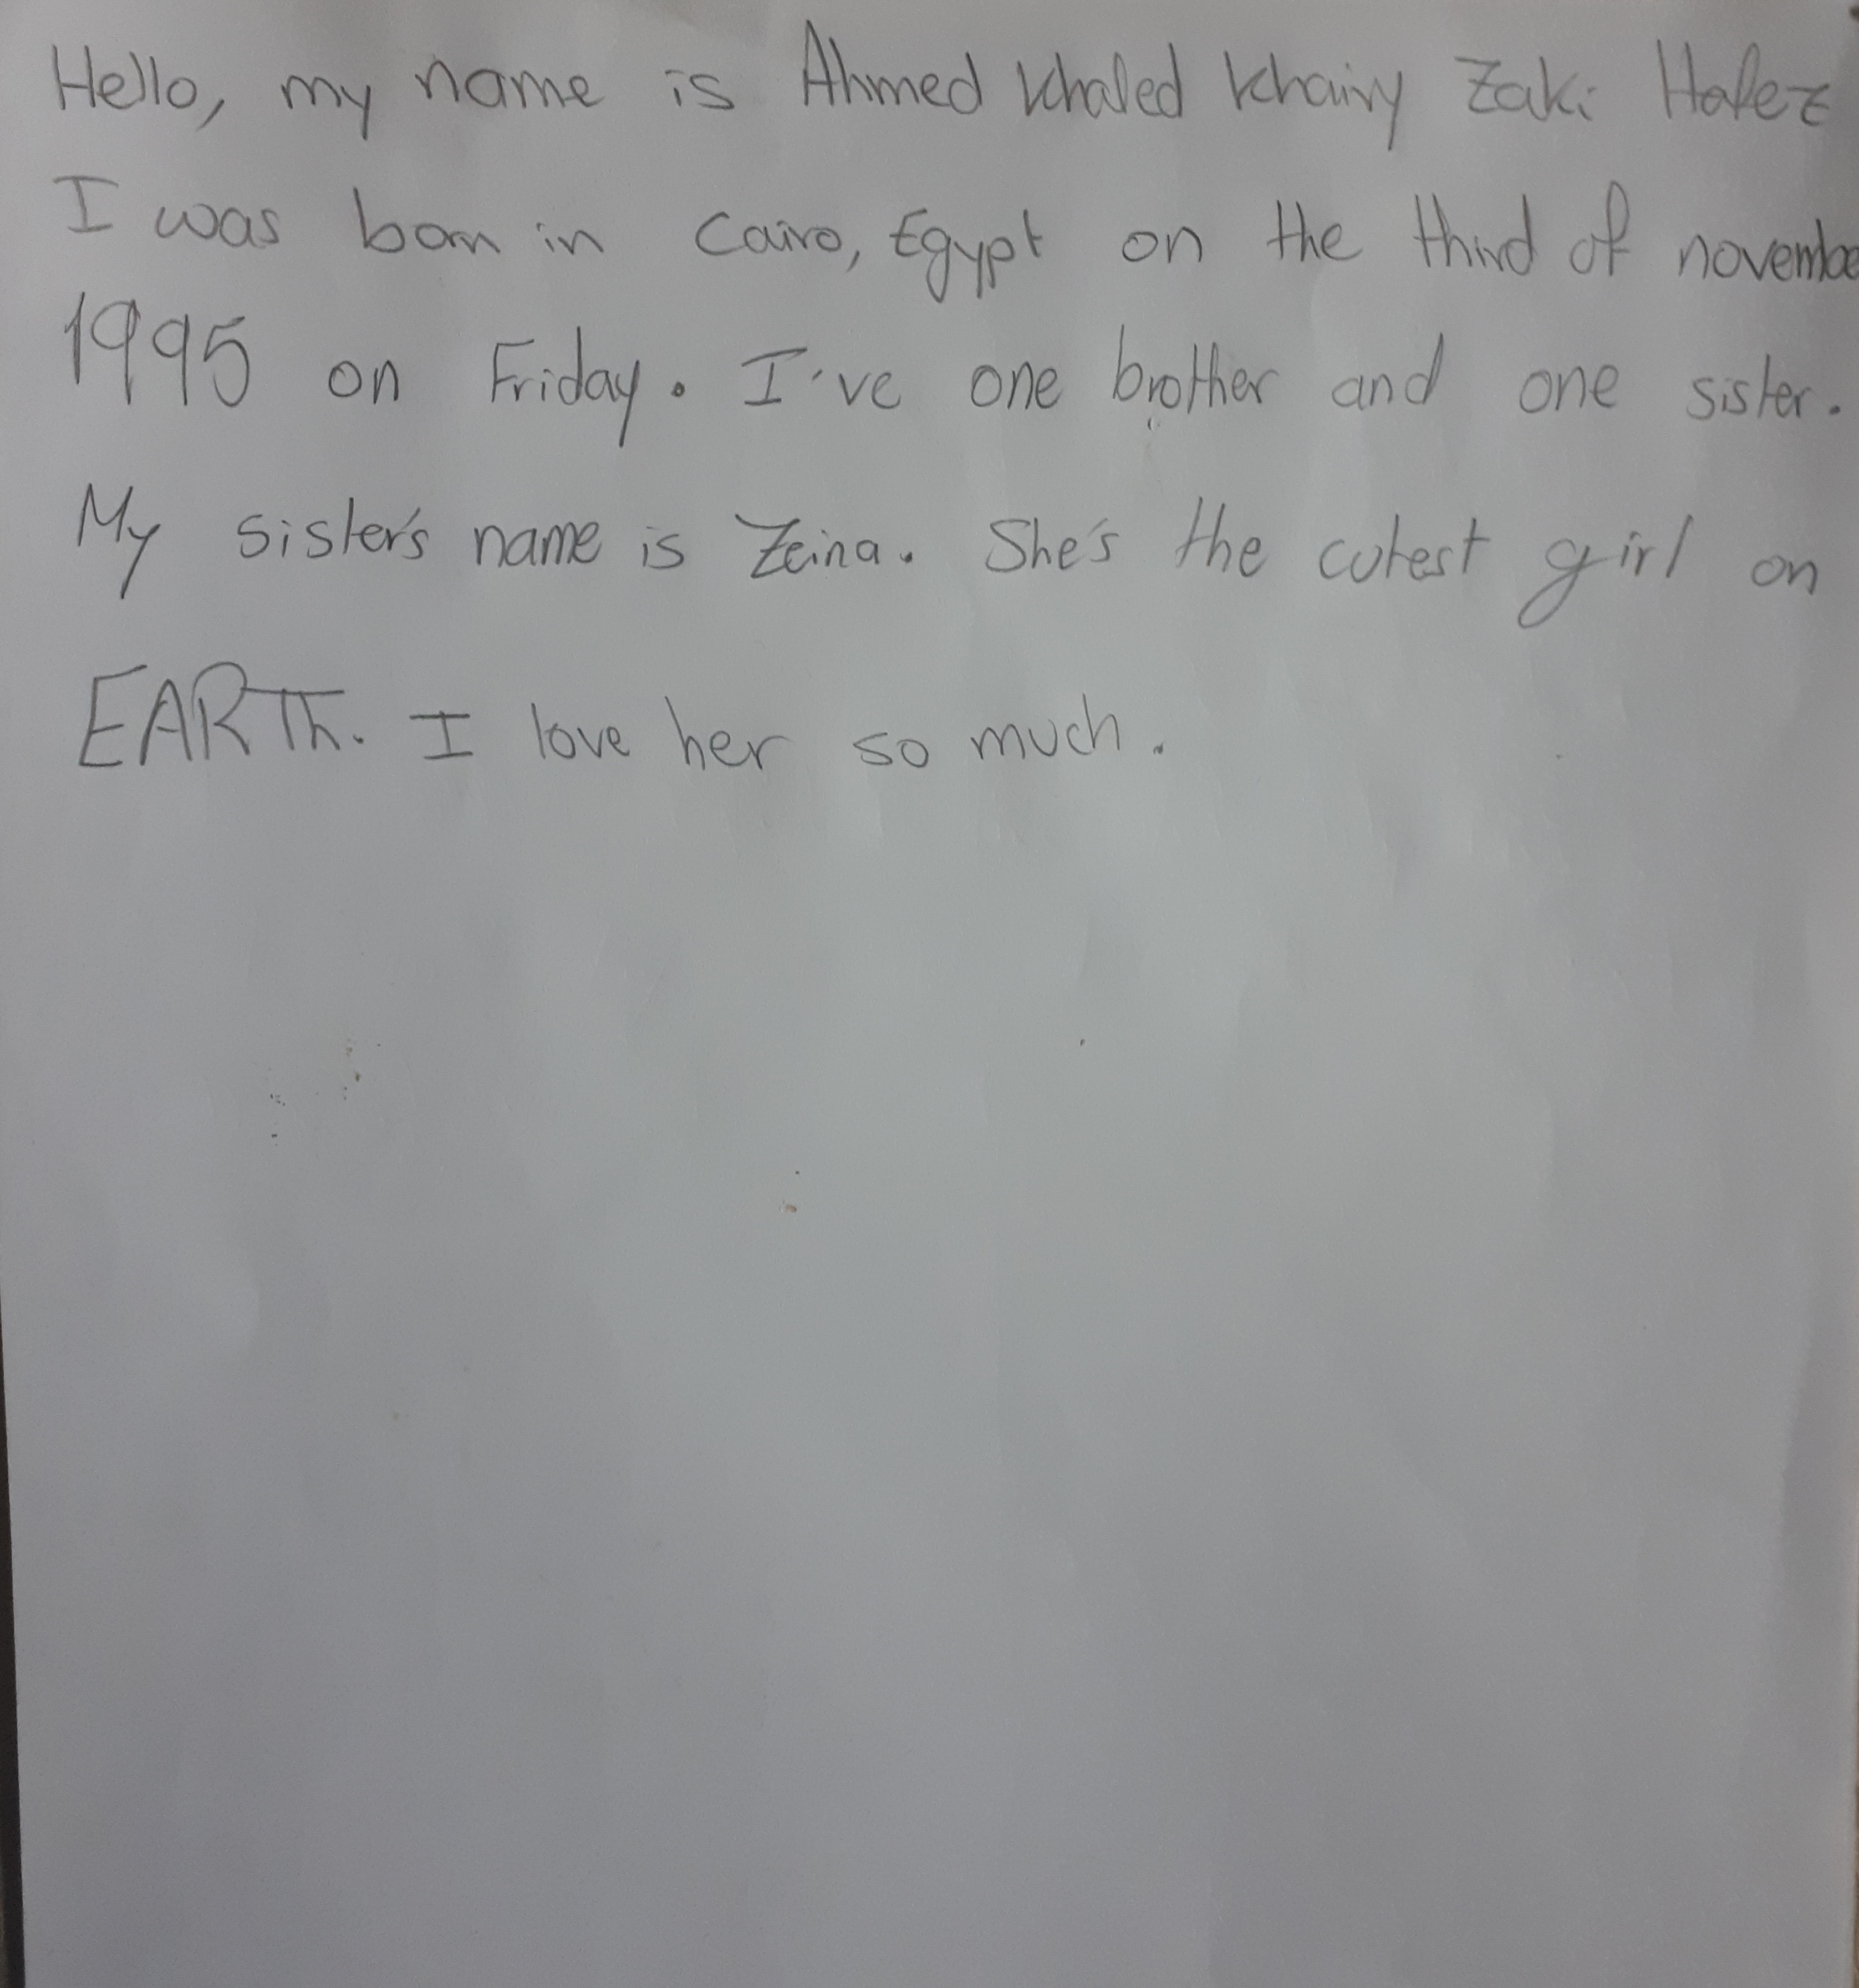 Hello, my name is Ahmed Khaled Khairy Zaki Hafez
I was born in Cairo, Egypt on the third of november
1995 on Friday. I've one brother and one sister.
My sister's name is Zeina. She's the cutest girl on
EARTh. I love her so much.